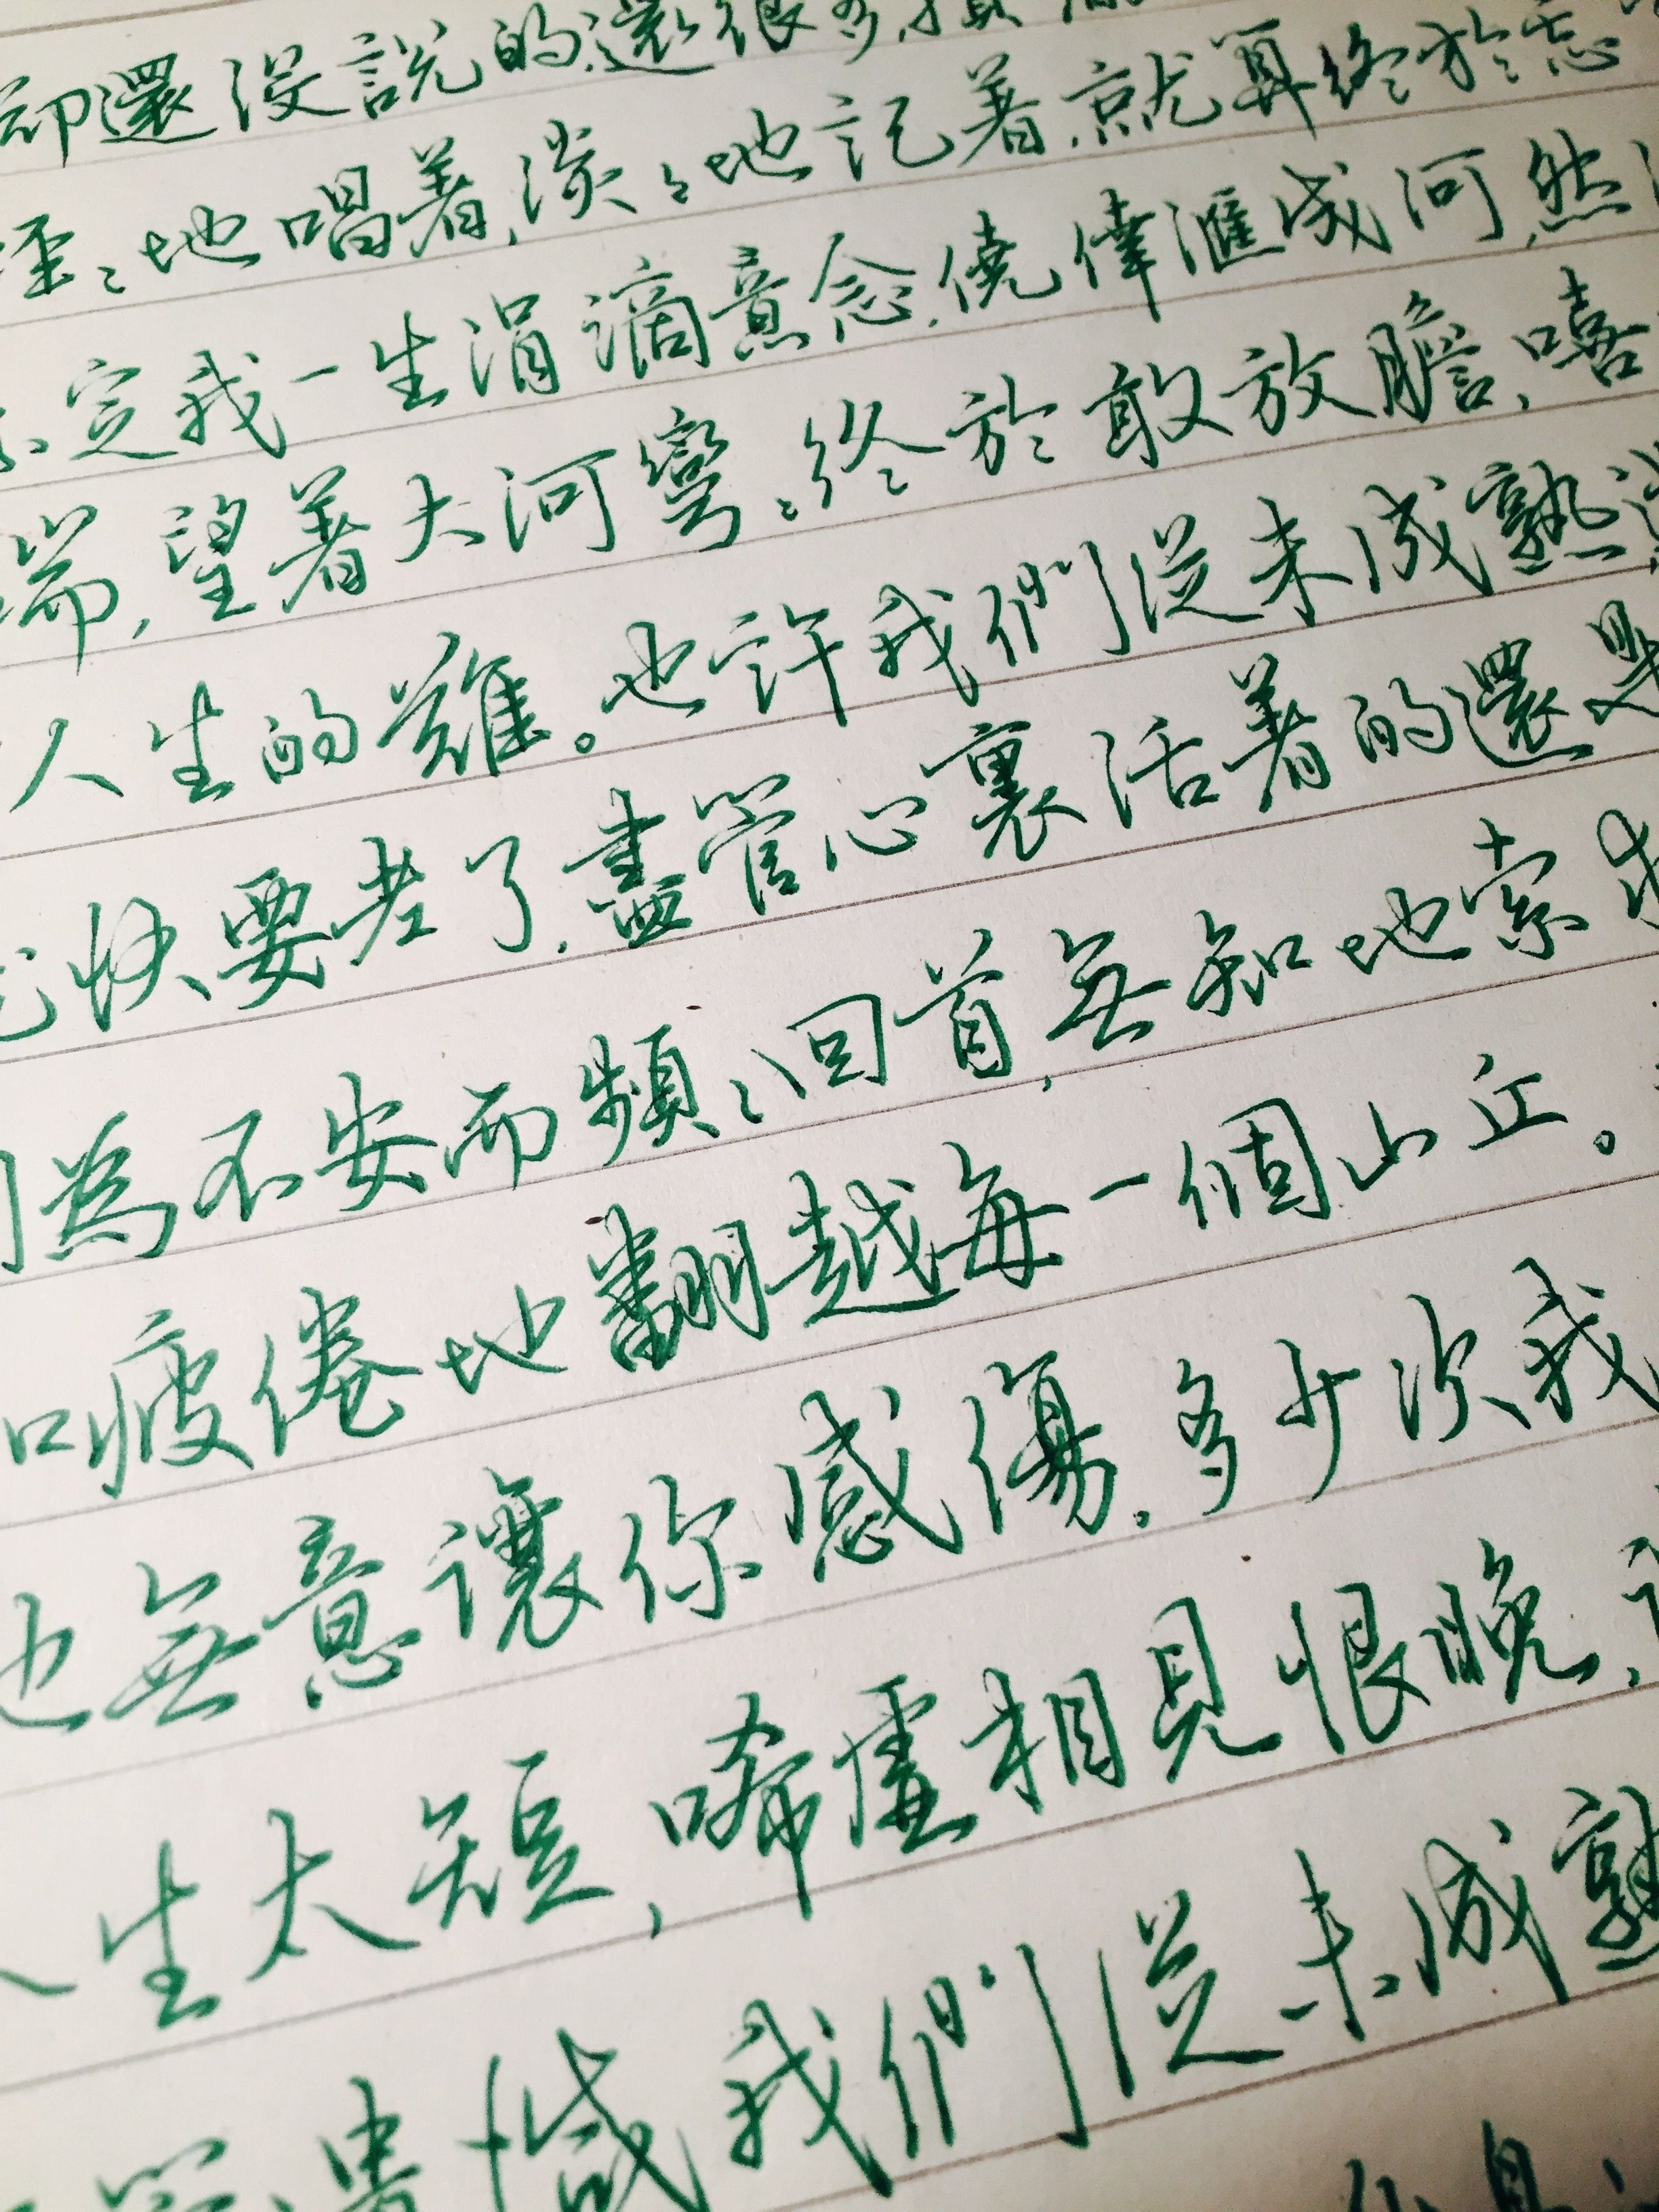 卻還沒說的還很多,攢
輕々地唱著,淡々地記著,就算終於忘
定我一生涓滴意念,僥倖匯成河,然
端,望著大河彎々,終於敢放膽,嘻
人生的難。也許我們從未成熟
快要老了,盡管心裏活著的還是
為不安而頻々回首,無知地索求
疲倦地翻越每一個山丘。
也無意讓你感傷,多少次我
生太短,唏噓相見恨晚,
遺憾我們從未成熟